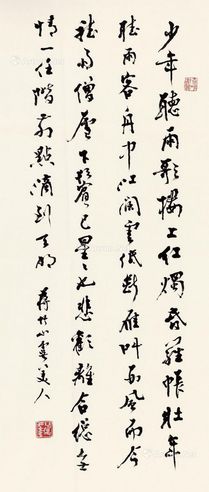 少年聽雨歌樓上红燭昏羅帳壮年
聽雨客舟中江闊雲低斷雁叫西風而今
聽雨僧廬下鬓已星星也悲歡離合總無
情一任階前點滴到天明　蒋捷小虞美人